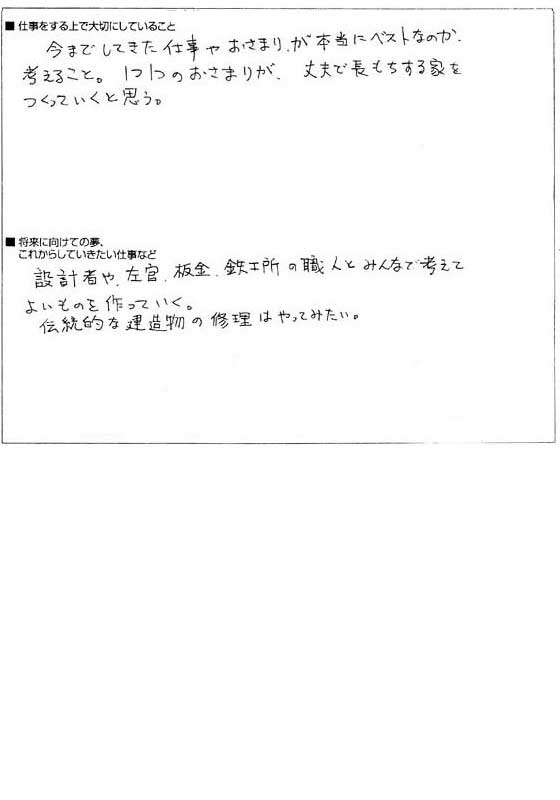 ■ 仕事をする上で大切にしていること
今までしてきた仕事やおさまり、が本当にベストなのか、
考えること。1つ1つのおさまりが、丈夫で長もちする家を
つくっていくと思う。
■ 将来に向けての夢、
これからしていきたい仕事など
設計者や、左官、板金、鉄工所の職人とみんなで考えて
よいものを作っていく。
伝統的な建造物の修理はやってみたい。